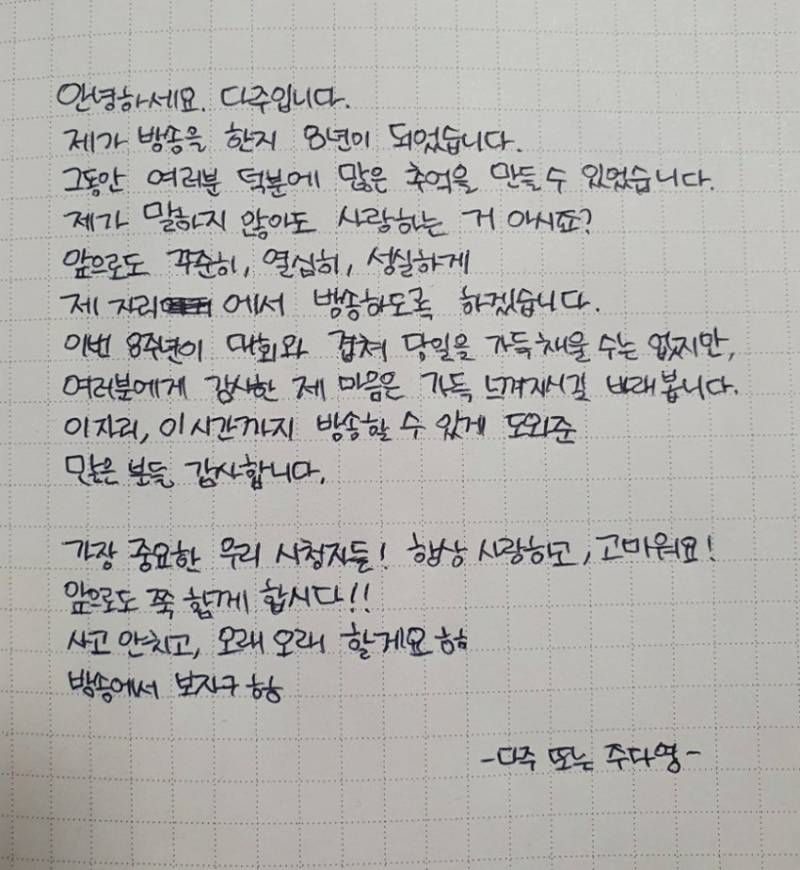 안녕하세요. 다주입니다.
제가 방송을 한지 8년이 되었습니다.
그동안 여러분 덕분에 많은 추억을 만들 수 있었습니다.
제가 말하지 않아도 사랑하는 거 아시죠?
앞으로도 꾸준히, 열심히, 성실하게
제 자리에서 방송하도록 하겠습니다.
이번 8주년이 대회와 겹쳐 당일을 가득 채울 수는 없지만,
여러분에게 감사한 제 마음은 가득 느껴지시길 바래봅니다.
이자리, 이시간까지 방송할 수 있게 도와준
많은 분들 감사합니다.
가장 중요한 우리 시청자들! 항상 사랑하고, 고마워요!
앞으로도 쭉 함께 합시다!!
사고 안치고, 오래 오래 할게요 헿
방송에서 보자구 헿
-다주 또는 주다영-